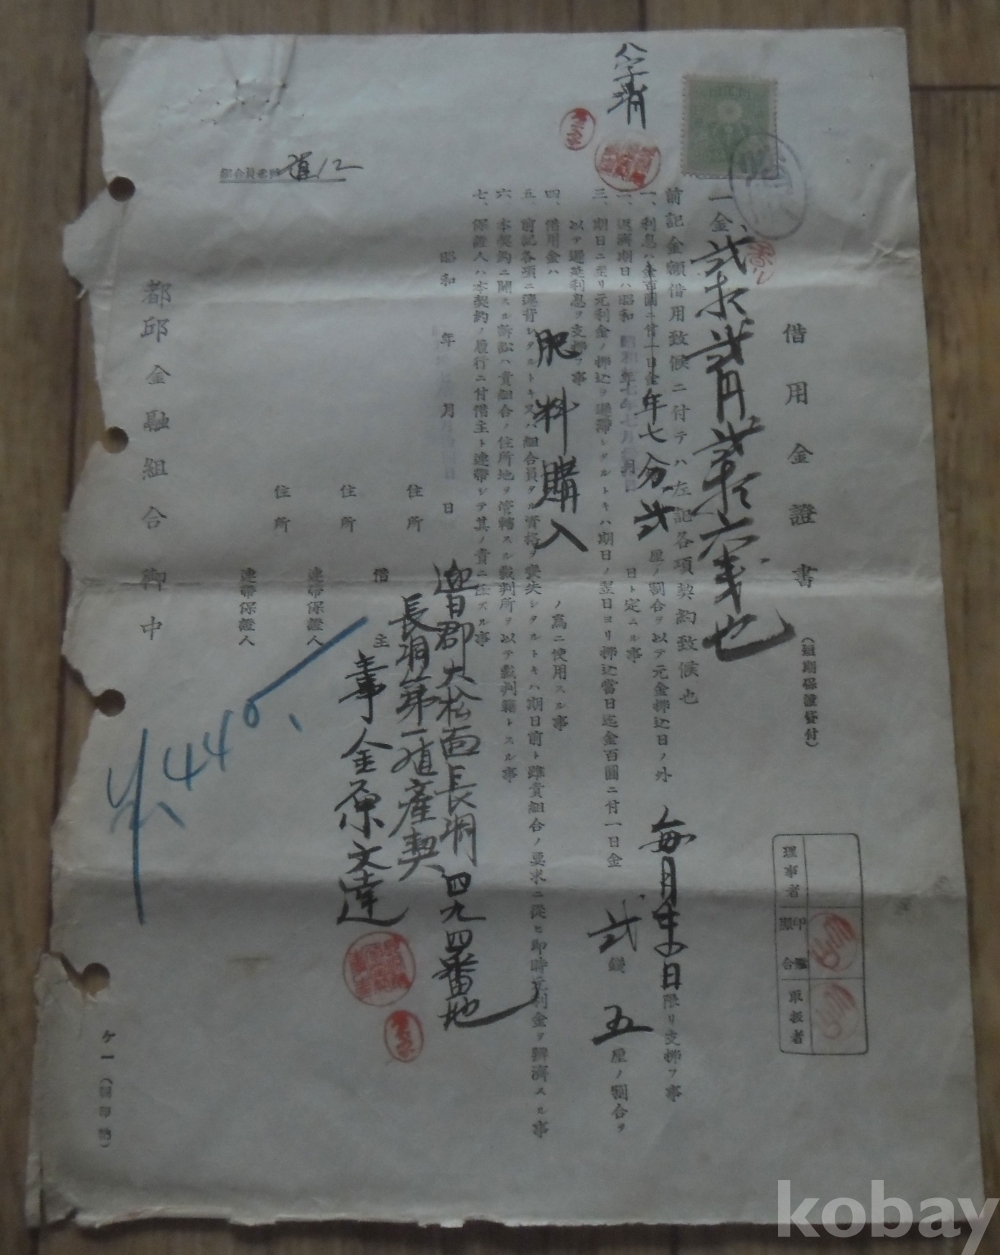 借用金證書
(短期保證貸付)
一金貳拾貳円貳拾六戔也
前記金額借用致候ニ付テハ左記各項契約致候也
一、利息ハ金百圓ニ付一日金年七分貳厘ノ割合ヲ以テ元金拂込日ノ外毎月末日限リ支拂フ事
二、返濟期日ハ昭和 日ト定ムル事
三、期日ニ至リ元利金ノ拂込ヲ遲滯シタルトキハ期日ノ翌日ヨリ拂込當日迄金百圓ニ付一日金貳錢五厘ノ割合ヲ
以テ遲延利息ヲ支拂フ事
四、借用金ハ肥料購入ノ爲ニ使用スル事
五、前記各項ニ違背シタルトキ又ハ組合員タル資格ヲ喪失シタルトキハ期日前ト雖貴組合ノ要求ニ從ヒ即時元利金ヲ辨濟スル事
六、本契約ニ關スル訴訟ハ貴組合ノ住所地ヲ管轄スル裁判所ヲ以テ裁判籍トスル事
七、保證人ハ本契約ノ履行ニ付借主ト連帶シテ其ノ責ニ任ズル事
昭和 年 月 日
住所 迎日郡大松面長洞四九四番地
長洞第一殖産契
借主 董事 金原文達
住所 連帶保證人
住所 連帶保證人
都邱金融組合御中
理事者
印鑑照合
取扱者
440
kobay